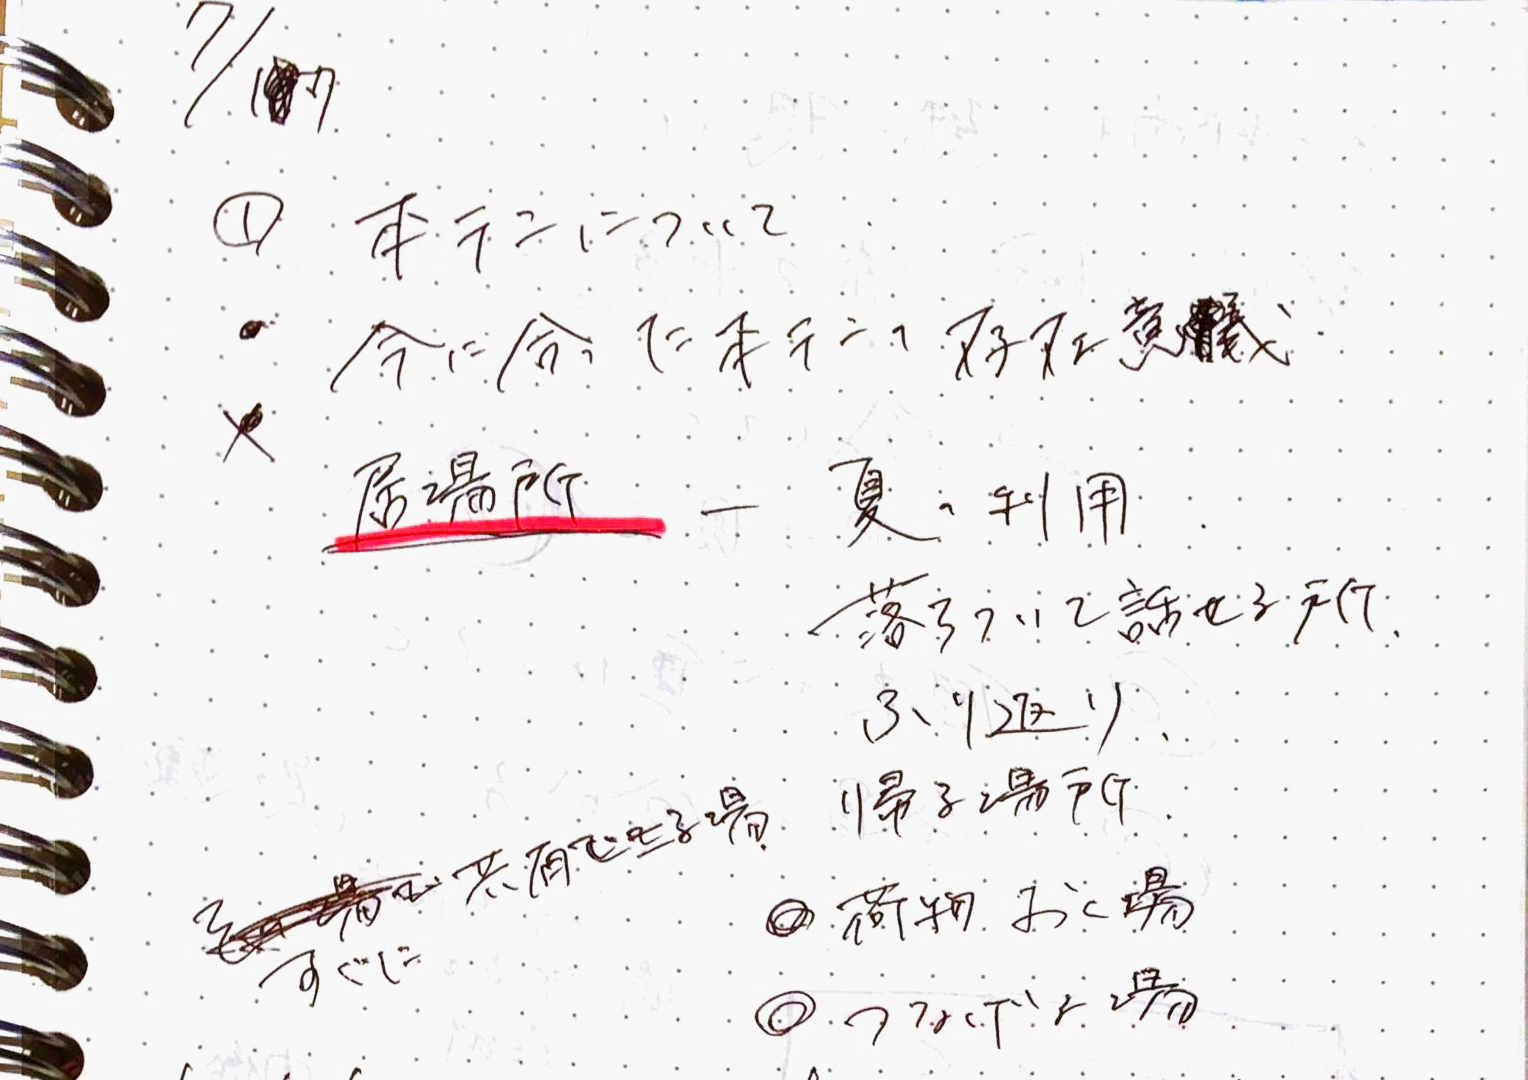 7/17
① 本テンについて
・ 今に合った本テンの存在意義.
居場所 ー 夏の利用.
落ちついて話せる所.
ふり返り.
帰る場所.
共有できる場
すぐに
◎ 荷物おく場
◎ つなげる場